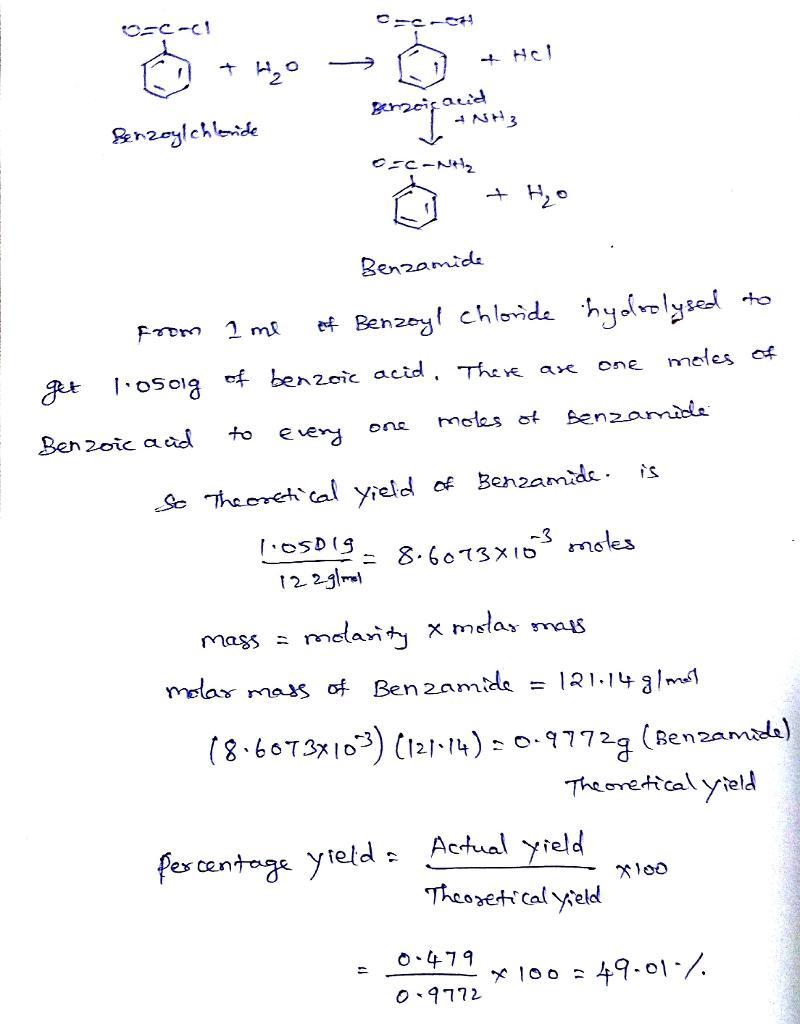 O=C-Cl
O=C-OH
+ H2O → + HCl
Benzoylchloride
Benzoic acid
+ NH3
O=C-NH2
+ H2O
Benzamide
From 1 ml of Benzoyl chloride hydrolysed to
get 1.0501g of benzoic acid. There are one moles of
Benzoic acid to every one moles of Benzamide
So Theoretical yield of Benzamide. is
1.0501g / 122g/mol = 8.6073×10^-3 moles
mass = molarity × molar mass
molar mass of Benzamide = 121.14 g/mol
(8.6073×10^-3) (121.14) = 0.9772g (Benzamide)
Theoretical yield
Percentage yield = Actual yield / Theoretical yield ×100
= 0.479 / 0.9772 × 100 = 49.01 %.